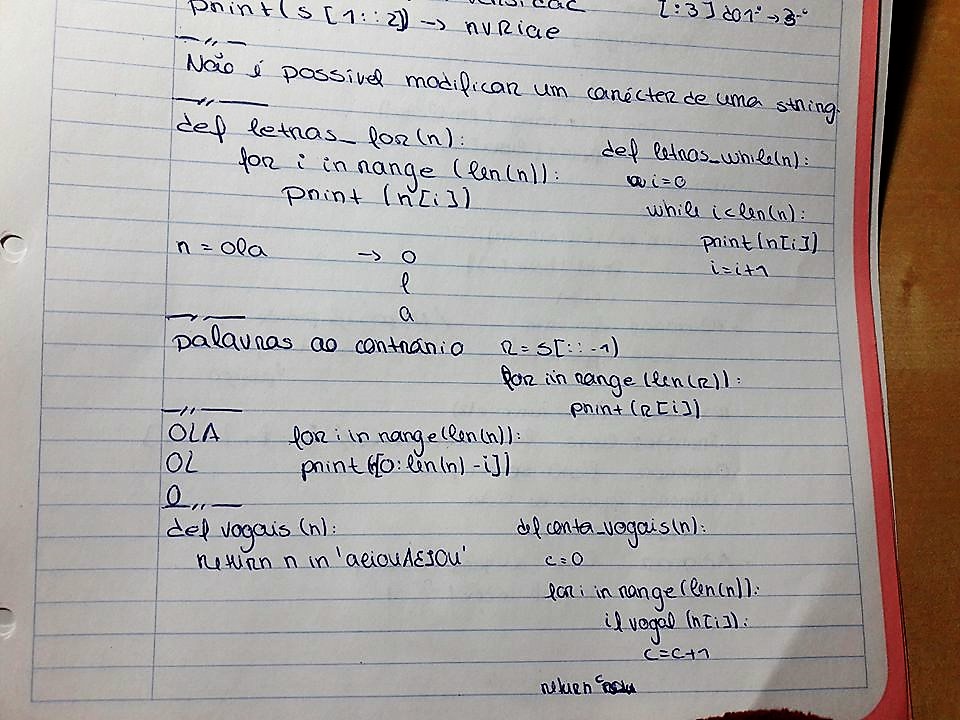 print(s[1::2]) → nvRiae
[:3] do 1º → 3º
Não é possível modificar um carácter de uma string.
def letras_for(n):
for i in range (len(n)):
print (n[i])
def letras_while(n):
i=0
while i<len(n):
print(n[i])
i=i+1
n = ola → o
l
a
palavras ao contrário
R=s[::-1)
for i in range(len(R)):
print(R[i])
OLA
OL
O
for i in range(len(n)):
print([0:len(n)-i])
def vogais (n):
return n in 'aeiouAEIOU'
def conta_vogais(n):
c=0
for i in range(len(n)):
if vogal (n[i]):
c=c+1
return c